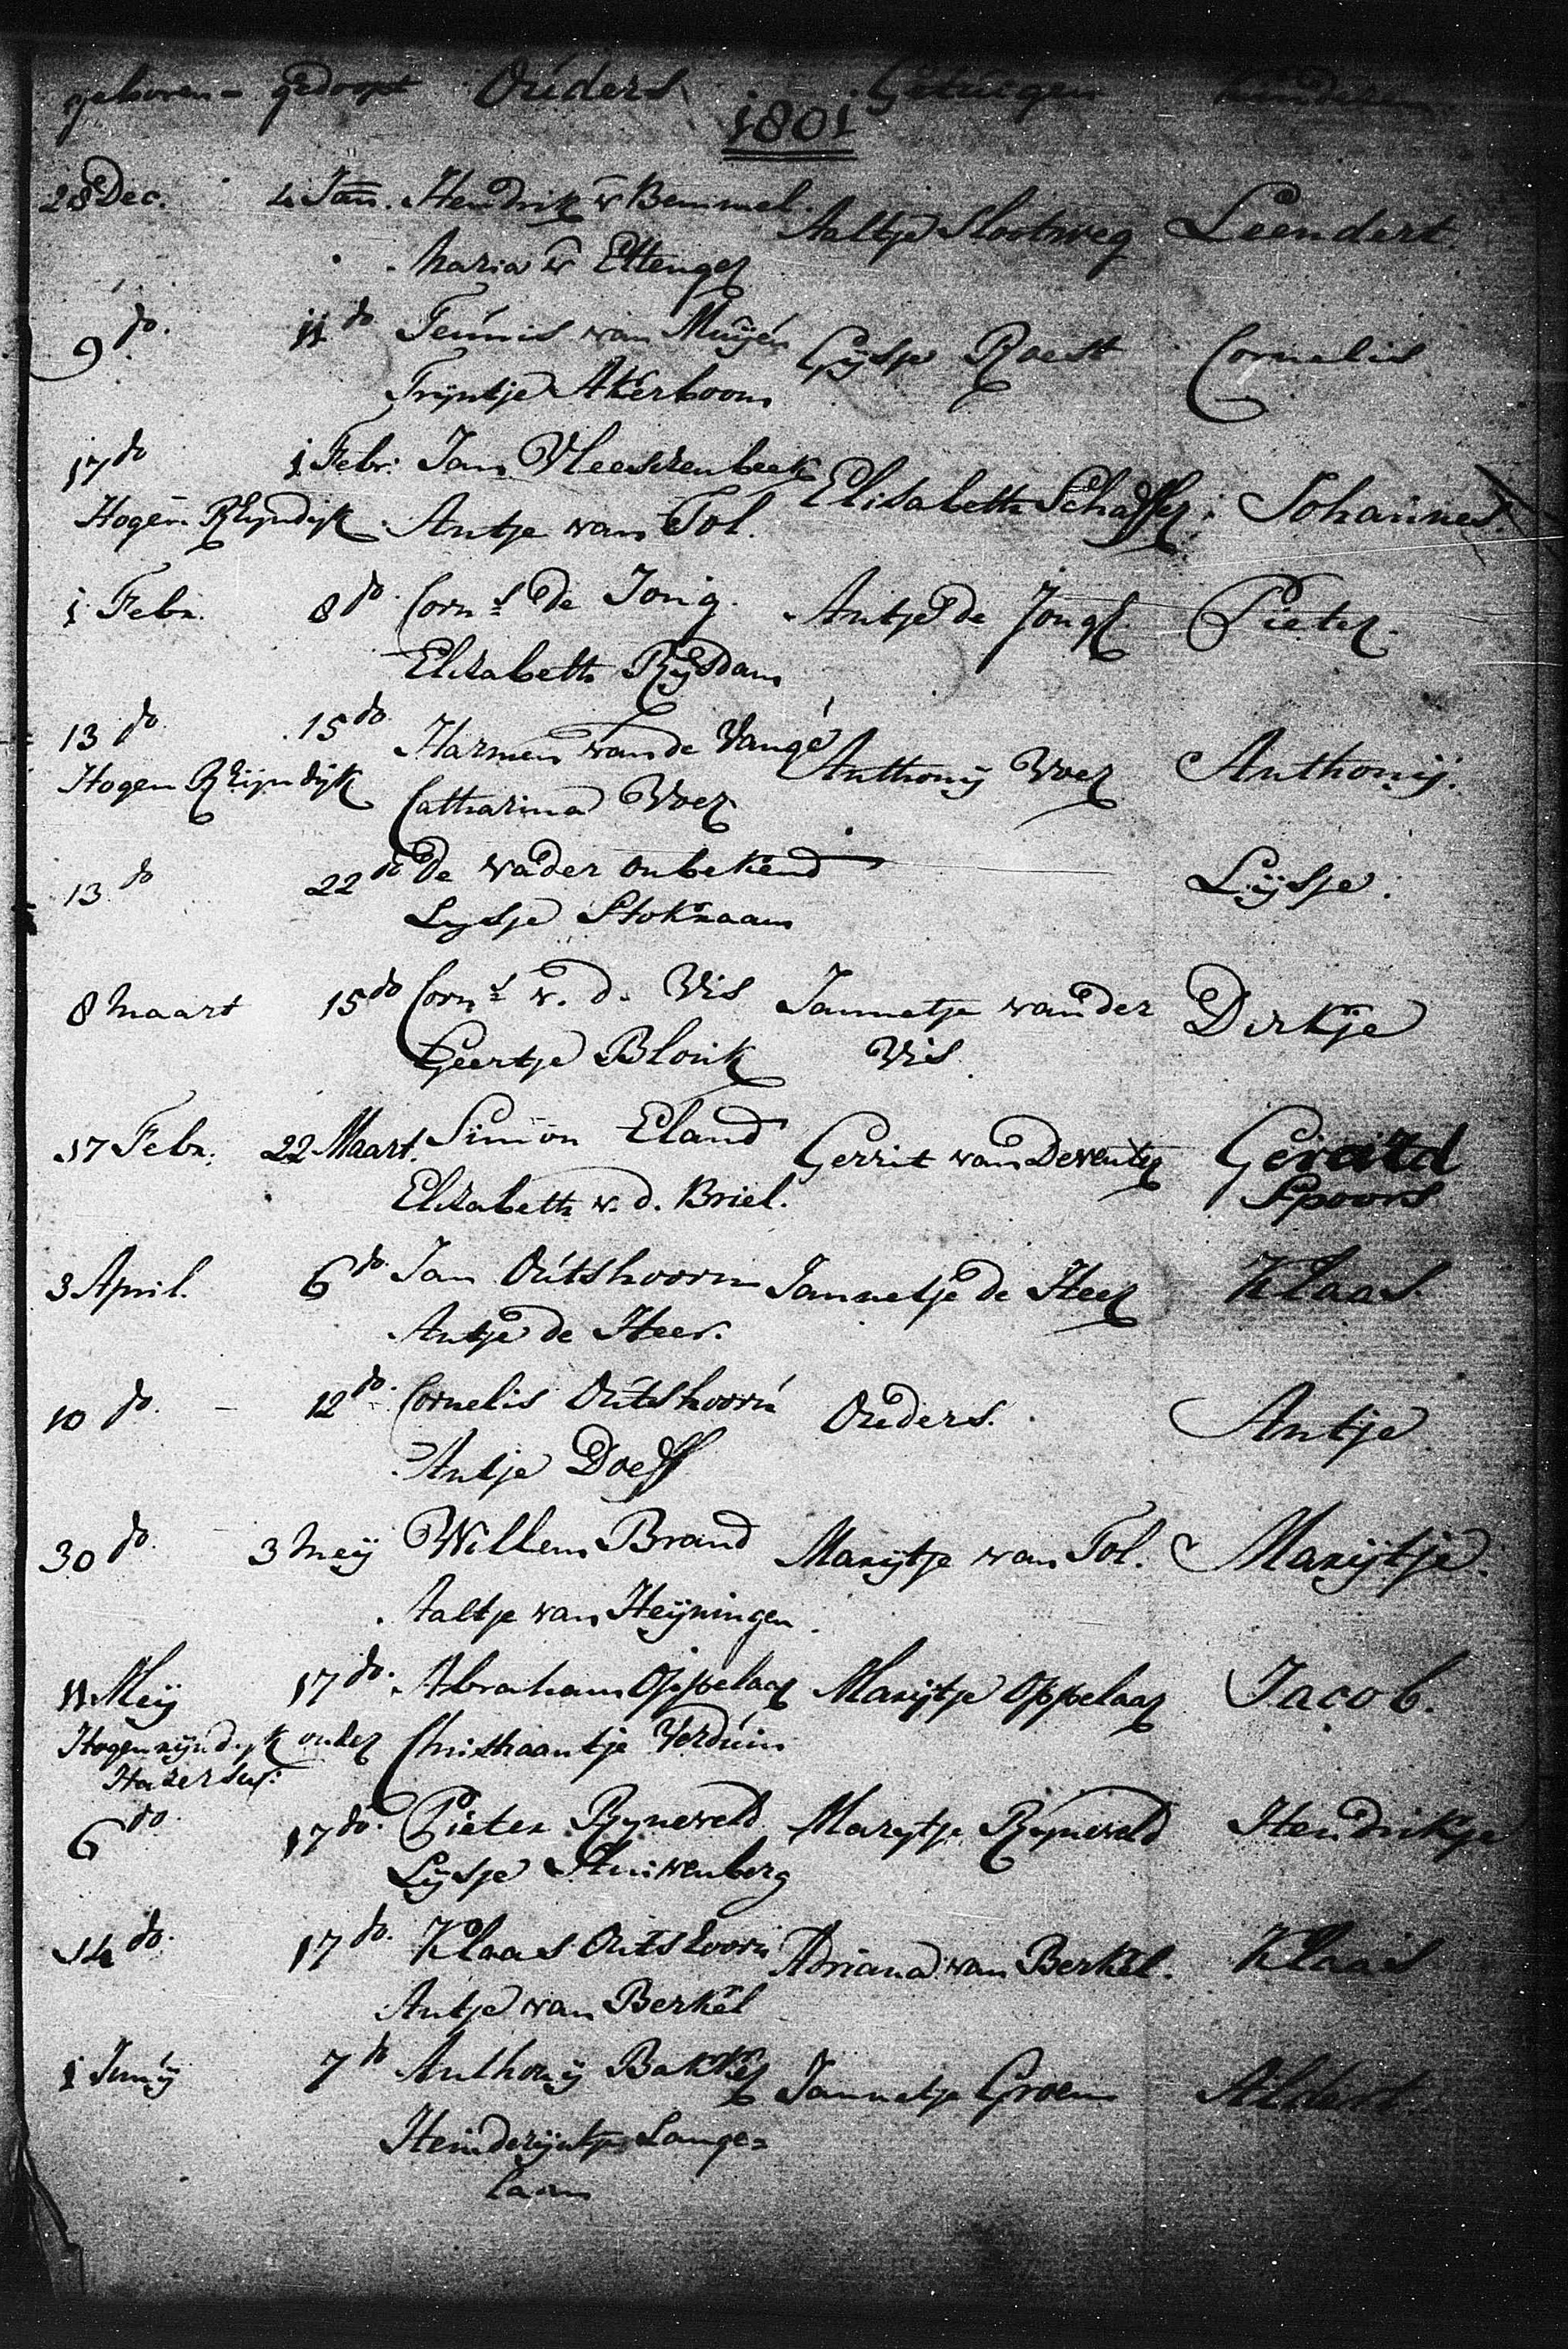 geboren - gedoopt Ouders Getuigen Kinderen
1801
28 Dec. 4 Jan. Hendrik v Bemmel. Aaltje Slootweg Leendert.
Maria v Ettenger
9 do. 11 do Teunis van Muijen Lijsje Roest Cornelis
Trijntje Akerboom
17 do 1 Febr: Jan Vleeschenbeek Elisabeth Scheffer Johannes.
Hogen Rhijndijk Antje van Tol.
1 Febr. 8 do. Corns de Jong. Antje de Jong Pieter.
Elisabeth Rijsdam
13 do 15 do. Harmen van de Vange Anthonij Voer Anthonij.
Hogen Rhijndijk Catharina Voer
13 do 22 do De vader onbekend Lijsje.
Lijsje Stokraam
8 Maart 15 do Corns v. d. Vis Jannetje van der Dirkje
Geertje Blonk Vis.
17 Febr. 22 Maart. Simon Eland Gerrit van Deventer Gerard
Elisabeth v. d. Briel. Spoors
3 April. 6 do. Jan Outshoorn Jannetje de Heer Klaas
Antje de Heer.
10 do. - 12 do. Cornelis Outshoorn Ouders. Antje
Antje Doeff
30 do. 3 Meij Willem Brand Marijtje van Tol. Marijtje.
Aaltje van Heijningen.
11 Meij 17 do. Abraham Oppelaar Marijtje Oppelaar Jacob.
Hogenrijndijk onder Christiaantje Verduin
Hazersw:
6 do. 17 do. Pieter Rijneveld Marijtje Rijneveld Hendrikje
Lijsje Stuivenberg
14 do. 17 do. Klaas Outshoorn Adriana van Berkel. Klaas
Antje van Berkel
1 Junij 7 do Anthonij Bakker Jannetje Groen Aldert.
Heinderijntje Lange=
laan